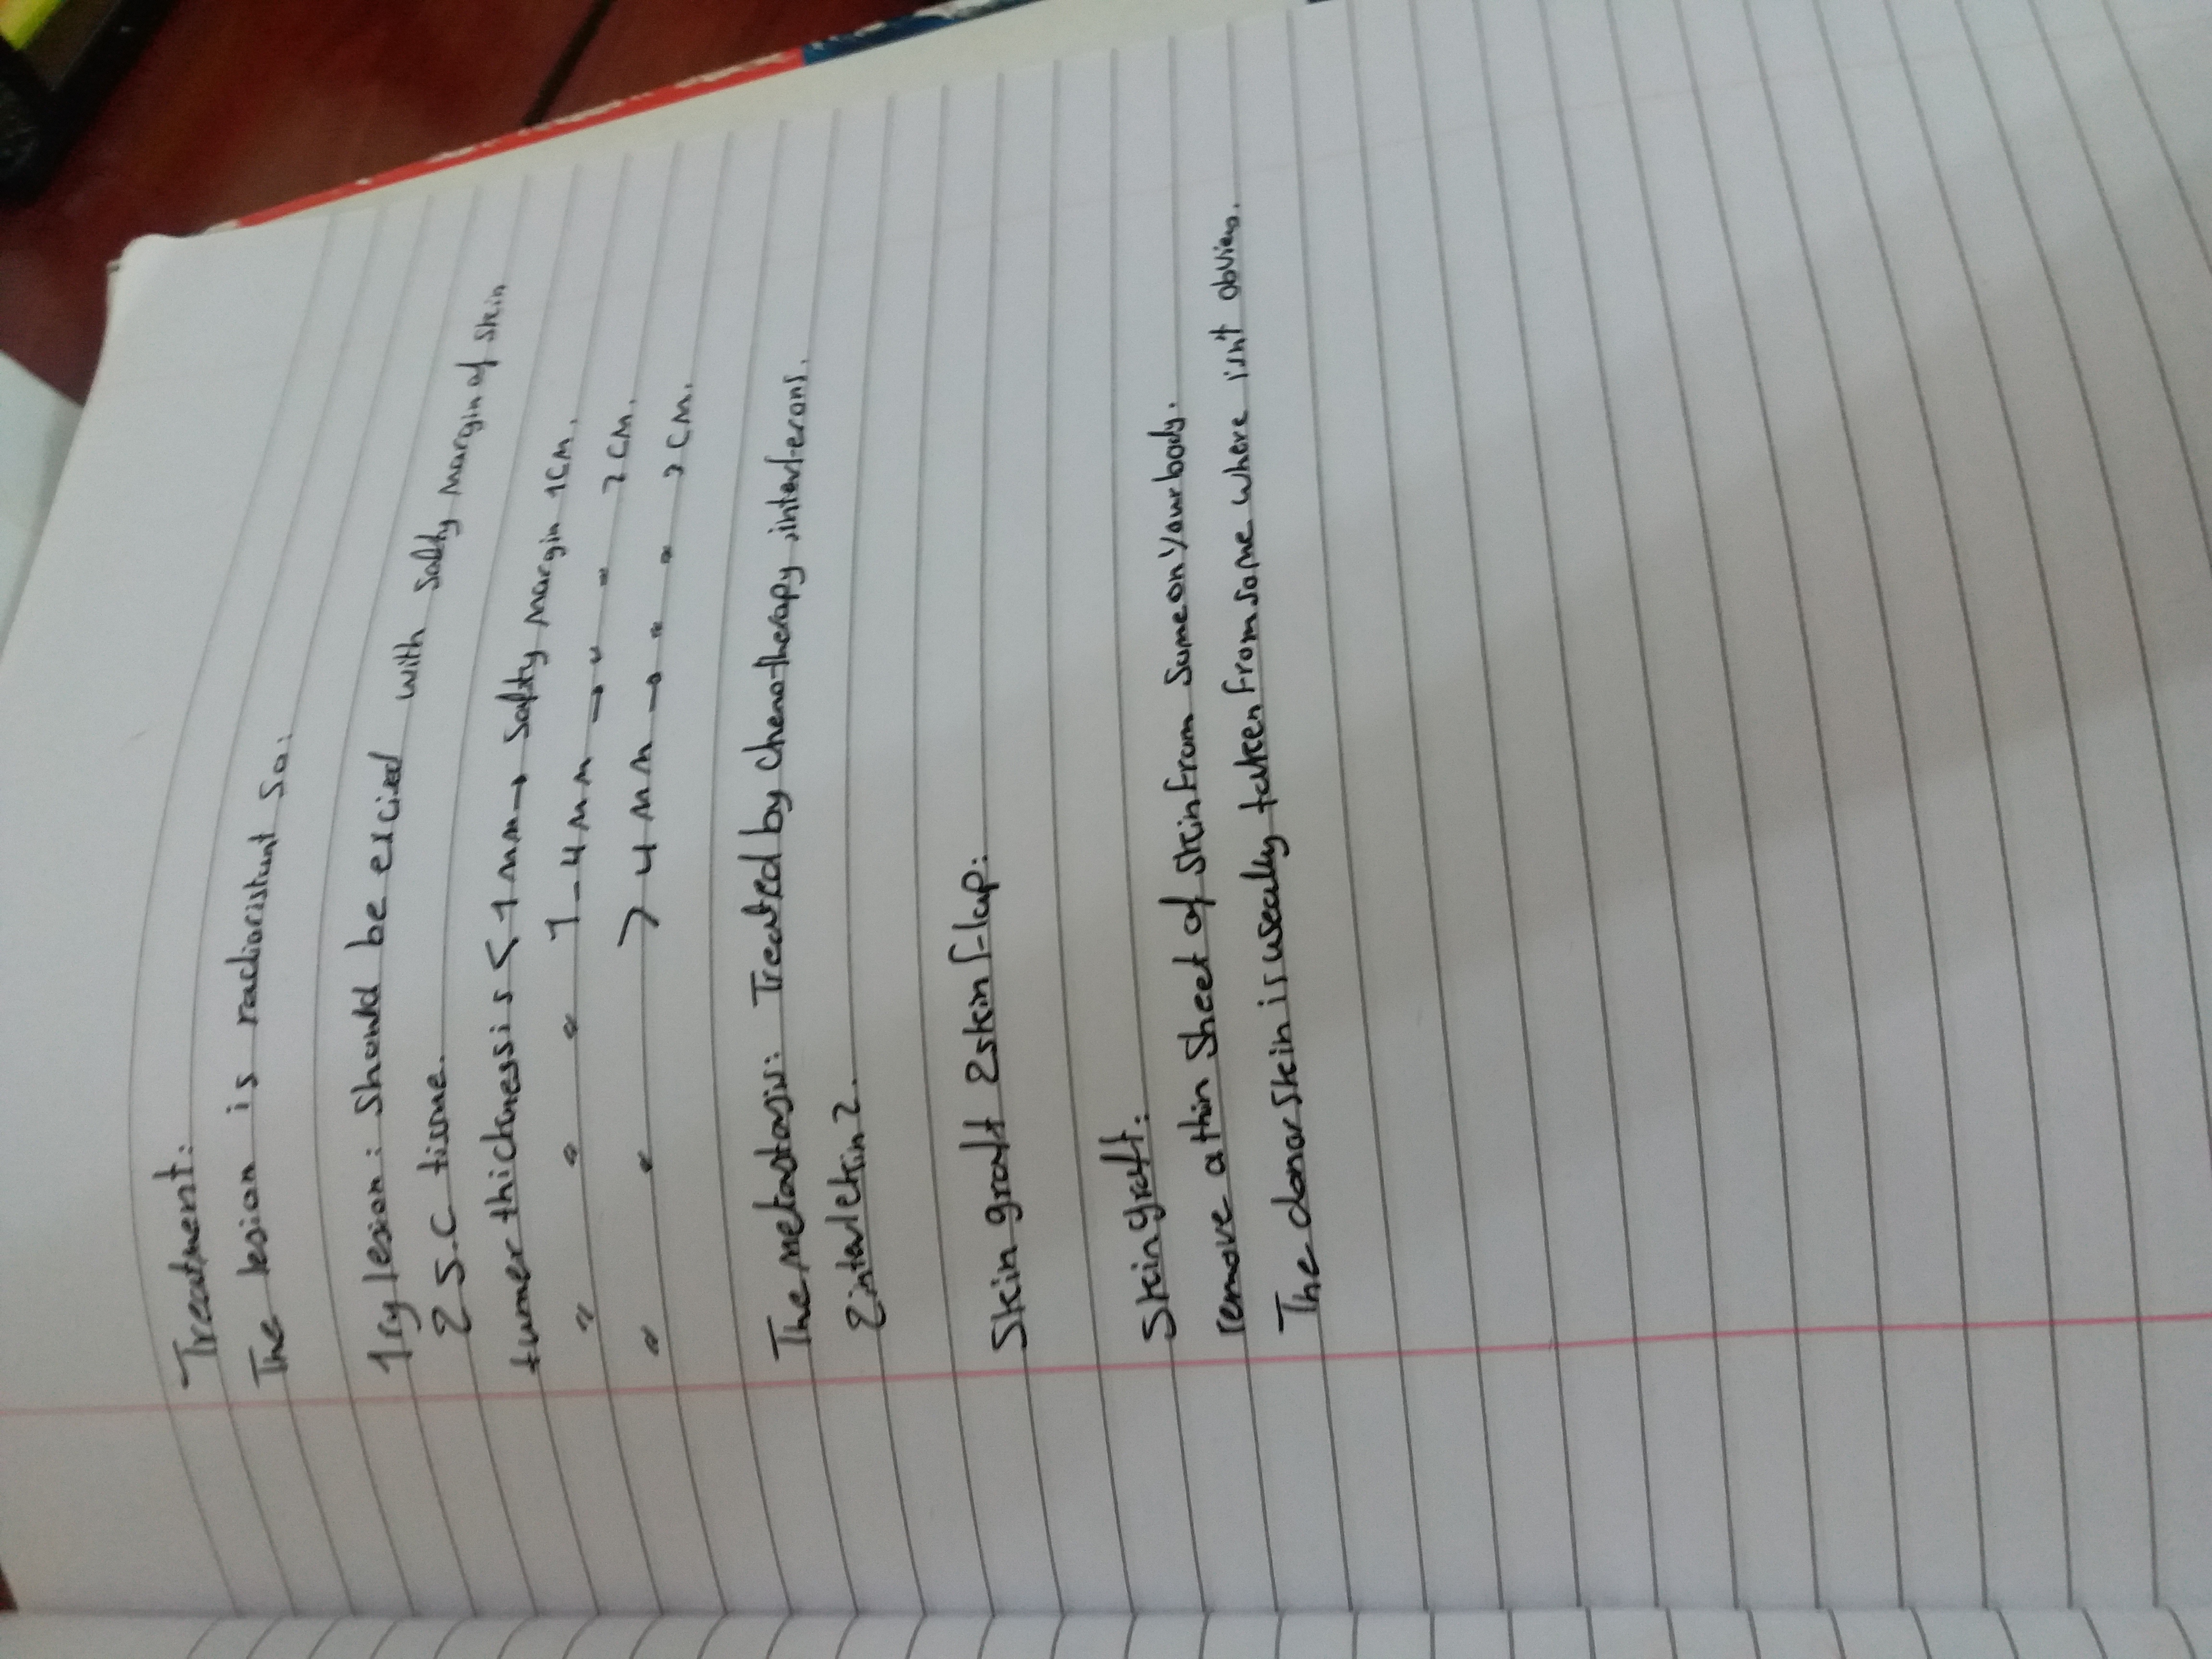 Treatment:
The lesion is radioristunt so:
1ry lesion: Should be excied with safty margin of skin
& S.C tissue.
tumer thickness is < 1 mm → safty margin 1cm.
" " " 1-4 mm → " " 2 cm.
" " > 4 mm → " " 2 cm.
The metastasis: Treated by chemotherapy, interferons.
& interlekin 2.
Skin graft & skin flap:
Skin graft:
remove a thin sheet of skin from some on your body.
The donor skin is useally taken from some where isn't obvious.